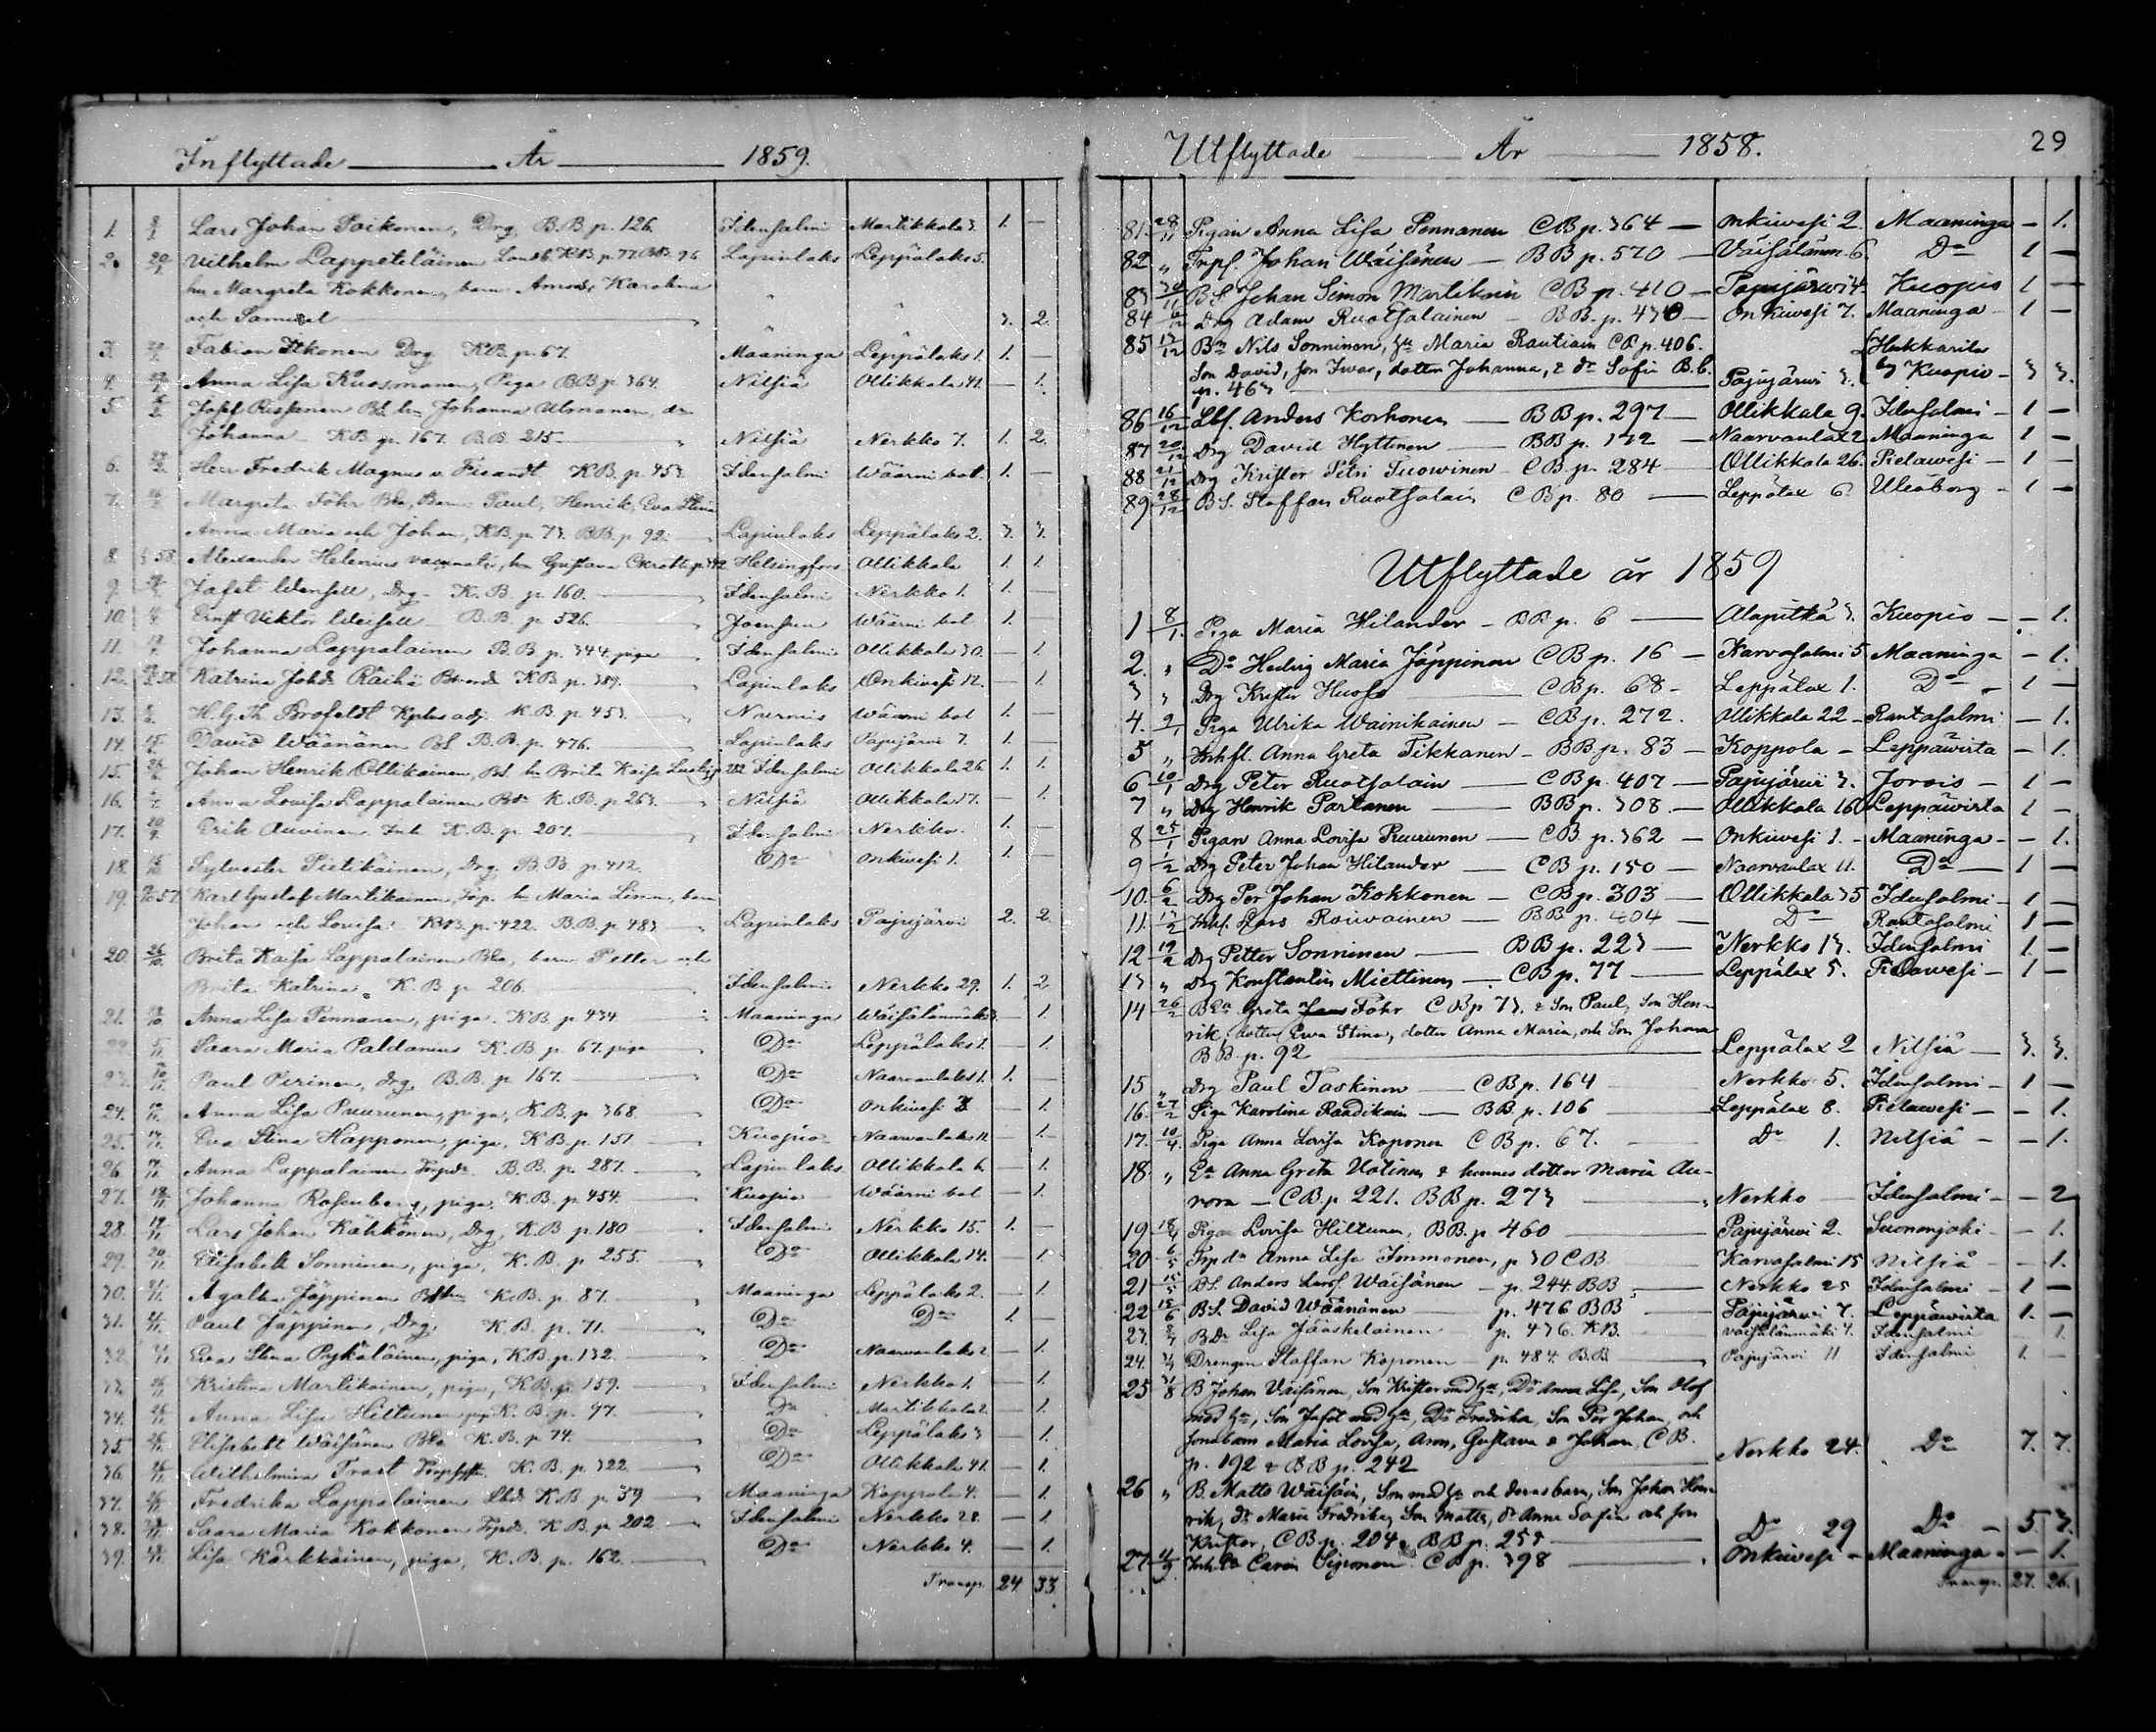 Inflyttade År 1859.
1. Lars Johan Poikonen, Drg. B.B. p. 126. Idensalmi Martikkala 3. 1. —
2. Vilhelm Lappeteläinen Lapinlaks Leppälaks 5.
hu Margreta Kokkonen, barn Karolina " "
och Samuel 3. 2.
3. Fabian Itkonen Drg K.B. p. 67. Maaninga Leppälaks 1. 1. —
4. Anna Lisa Kuosmanen, Piga BB p. 364. Nilsiä Ollikkala 41. — 1.
5. Josef Rissanen BS. hu Johanna
Johanna KB. p. 167. B.B. 215. Nilsiä Nerkko 7. 1. 2.
6. Herr Fredrik Magnus v. Fieandt K.B. p. 453. Idensalmi Wäärni bol. 1. —
7. Margreta Föhr Bda, Barn: Paul, Henrik, Eva Stina
Anna Maria och Johan, K.B. p. 73. BB. p. 92. Lapinlaks Leppälaks 2. 3. 3.
8. Alexander Helenius hu Gustava Helsingfors Ollikkala 1. 1.
9. Jafet Drg. K.B. p. 160. Idensalmi Nerkko 1. 1. —
10. Ernst Viktor B.B. p. 526. Joensuu Wäärni bol 1. —
11. Johanna Lappalainen B.B. p. 344. piga Idensalmi Ollikkala 30. — 1.
12. Katrina K.B. p. 389. Lapinlaks Onkivesi 12. — 1.
13. H. G. Th. Brofeldt Kplns adj. K.B. p. 453. Nurmis Wäärni bol 1. —
14. David Wäänänen BS B.B. p. 476. Lapinlaks Pajujärvi 7. 1. —
15. Johan Henrik Ollikainen, BS. hu Brita Kaisa Idensalmi Ollikkala 26. 1. 1.
16. Anna Lovisa Lappalainen K.B. p. 263. Nilsiä Ollikkala 17. — 1.
17. Erik Auvinen Inh K.B. p. 207. Idensalmi Nerkko. 1. —
18. Sylvester Pietikäinen, Drg. B.B. p. 412. Do Onkivesi 1. 1. —
19. Karl Gustaf Martikainen, hu Maria barn
Johan och Lovisa: KB. p. 422. B.B. p. 483 Lapinlaks Pajujärvi 2. 2.
20. 26/10. Brita Kaisa Lappalainen Bda, barn Petter och
Brita Katrina. K.B. p. 206. Idensalmi Nerkko 29. 1. 2
21. Anna Lisa Pennanen, piga. K.B. p. 434 Maaninga Wäisälänmäki — 1.
22. 5/11. Saara Maria Paldanius K.B. p. 67. piga Do Leppälaks 1. — 1.
23. Paul Pirinen, drg. B.B. p. 167. Do Naarvanlaks 1. 1. —
24. Anna Lisa Puurunen, piga, K.B. p. 368. Do Onkivesi — 1.
25. Eva Stina Happonen, piga, K.B. p. 151. Kuopio Naarvanlaks 11. — 1.
26. Anna Lappalainen B.B. p. 287. Lapinlaks Ollikkala 6. — 1.
27. 18/11. Johanna Rosenberg, piga, K.B. p. 454. Kuopio Wäärni bol — 1.
28. Lars Johan Kähkönen, Drg. K.B. p. 180 Idensalmi Nerkko 15. 1. —
29. 20/11. Elisabeth Sonninen, piga, K.B. p. 255. Do Ollikkala 14. — 1.
30. 21/11. Agatha Jäppinen K.B. p. 87. Maaninga Leppälaks 2. — 1.
31. Paul Jäppinen, Drg. K.B. p. 71. Do Do 1. —
32. Eva Stina Pykäläinen, piga, K.B. p. 132. Do Naarvanlaks 2. — 1.
33. Kristina Martikainen, piga, K.B. p. 159. Idensalmi Nerkko 1. — 1.
34. Anna Lisa Hiltunen K.B. p. 97. Do Martikkala 2. — 1.
35. Elisabeth Wäisänen Bda K.B. p. 74. Do Leppälaks 3 — 1.
36. Wilhelmina Trast K.B. p. 322. Do Ollikkala 41. — 1.
37. Fredrika Lappalainen K.B. p. 39 Maaninga Koppola 4. — 1.
38. Saara Maria Kokkonen K.B. p. 202 Idensalmi Nerkko 28. — 1.
39. Lisa Kärkkäinen, piga, K.B. p. 162. Do Nerkko 4. — 1.
Transp. 24. 33.
Utflyttade År 1858. 29
81. 28/11 Pigan Anna Lisa Pennanen CB p. 364 — Onkivesi 2. Maaninga — 1.
82 " Trps. Johan Wäisänen — BB p. 570 — Väisälänm. 6. Do 1 —
83 30/11 B.S. Johan Simon Martikain CB p. 410 — Pajujärwi 4. Kuopio 1 —
84 Drg Adam Ruotsalainen — BB. p. 430 — Onkivesi 7. Maaninga — 1 —
85 13/12 Bn Nils Sonninen, Hu Maria Rautiain CB p. 406.
Son David, Son Iwar, dotter Johanna, & dr Sofia B.B. Hakkarila
p. 463 Pajujärwi 3. Kuopio — 3 3.
86 16/12 Lbf. Anders Korhonen — BB p. 297 — Ollikkala 9. Idensalmi — 1 —
87 20/12 Drg David Hyttinen — BB p. 132 — Naarvanlax 2 Maaninga 1 —
88 21/12 Drg Krister Petri Tuowinen — CB p. 284 — Ollikkala 26. Pielawesi — 1 —
89 28/12 B.S. Staffan Ruotsalain CB p. 80 — Leppälax 6. Uleåborg — 1 —
Utflyttade år 1859
1 8/1. Piga Maria Hilander — BB p. 6 — Alapitkä 3. Kuopio — — 1.
2. " Do Hedvig Maria Jäppinen CB p. 16 — Karvasalmi 5 Maaninga — 1.
3 " Drg Krister Huoso — CB p. 68 — Leppälax 1. Do — 1 —
4. 9/1 Piga Ulrika Wainikainen — CB p. 272. Ollikkala 22 — Rantasalmi — 1.
5 " Inhfl. Anna Greta Tikkanen — BB p. 83 — Koppola — Leppäwirta — 1.
6 10/1 Drg Peter Ruotsalain — CB p. 407 — Pajujärwi 3. Jorois — 1 —
7 " Drg Henrik Partanen — BB p. 308 — Ollikkala 16 Leppäwirta 1 —
8 25/1 Pigan Anna Lovisa Puurunen — CB p. 362 — Onkivesi 1. — Maaninga — — 1.
9 1/2 Drg Peter Johan Hilander — CB p. 150 — Naarvanlax 11. Do — 1 —
10. 6/2 Drg Per Johan Kokkonen — CB p. 303 — Ollikkala 35 Idensalmi — 1 —
11. 13/2 Inhl. Lars Rouvainen — BB p. 404 — Do Rantasalmi 1 —
12 19/2 Drg Petter Sonninen — BB p. 223 — Nerkko 13. Idensalmi 1 —
13 " Drg Konstantin Miettinen — CB p. 77 — Leppälax 5. Pielawesi — 1 —
14 26/2 Bda Greta Föhr CB p. 73. & Son Paul, Son Hen-
rik, dotter Ewa Stina, dotter Anna Maria, och Son Johan
BB p. 92 Leppälax 2 Nilsiä — 3. 3.
15 " Drg Paul Taskinen — CB p. 164 Nerkko 5. Idensalmi — 1 —
16. 27/2 Piga Karolina Raadikain — BB. p. 106 Leppälax 8. Pielawesi — — 1.
17. 10/4. Piga Anna Lovisa Koponen CB p. 67. Do 1. Nilsiä — — 1.
18. " Ea Anna Greta Utinen & hennes dotter Maria Au-
rora — CB p. 221. BB p. 273 Nerkko Idensalmi — — 2
19 18/4 Pigan Lovisa Hiltunen, BB. p 460 Pajujärwi 2. Suonenjoki — — 1.
20 6/5 Trpdr Anna Lisa Immonen, p 30 CB Karvasalmi 15 Nilsiä — — 1.
21 15/5 BS. Anders Larss. Wäisänen — p. 244. BB Nerkko 25 Idensalmi — 1 —
22 15/6 B.S. David Wäänänen p. 476 BB Pajujärwi 7. Leppäwirta 1. —
23. BDr Lisa Jääskeläinen p. 436. KB. Väisälänmäki 4. Idensalmi 1.
24. Drengen Staffan Koponen — p. 484. B.B. Pajujärvi 11 Idensalmi 1. —
25 31/8 B Johan Väisänen, Son Krister med Hu, Dr Anna Lisa, Son Olof
med Hu, Son Jafet med Hu, Dr Fredrika, Son Per Johan, och
Sonabarn Maria Lovisa, Aron, Gustava & Johan, CB.
p. 192 & BB p. 242 Nerkko 24. Do 7. 7.
26 " B. Matts Wäisäin, Son med Hu och deras barn, Son Johan Hen-
rik, dr Maria Fredrika, Son Matts, dr Anna Sofia och Son
Krister, CB p. 204. BB p. 255 Do 29 Do — 5. 3.
27. Inhda Carin Siponen. CB p. 398 Onkivesi — Maaninga — — 1.
Transp. 27. 26.